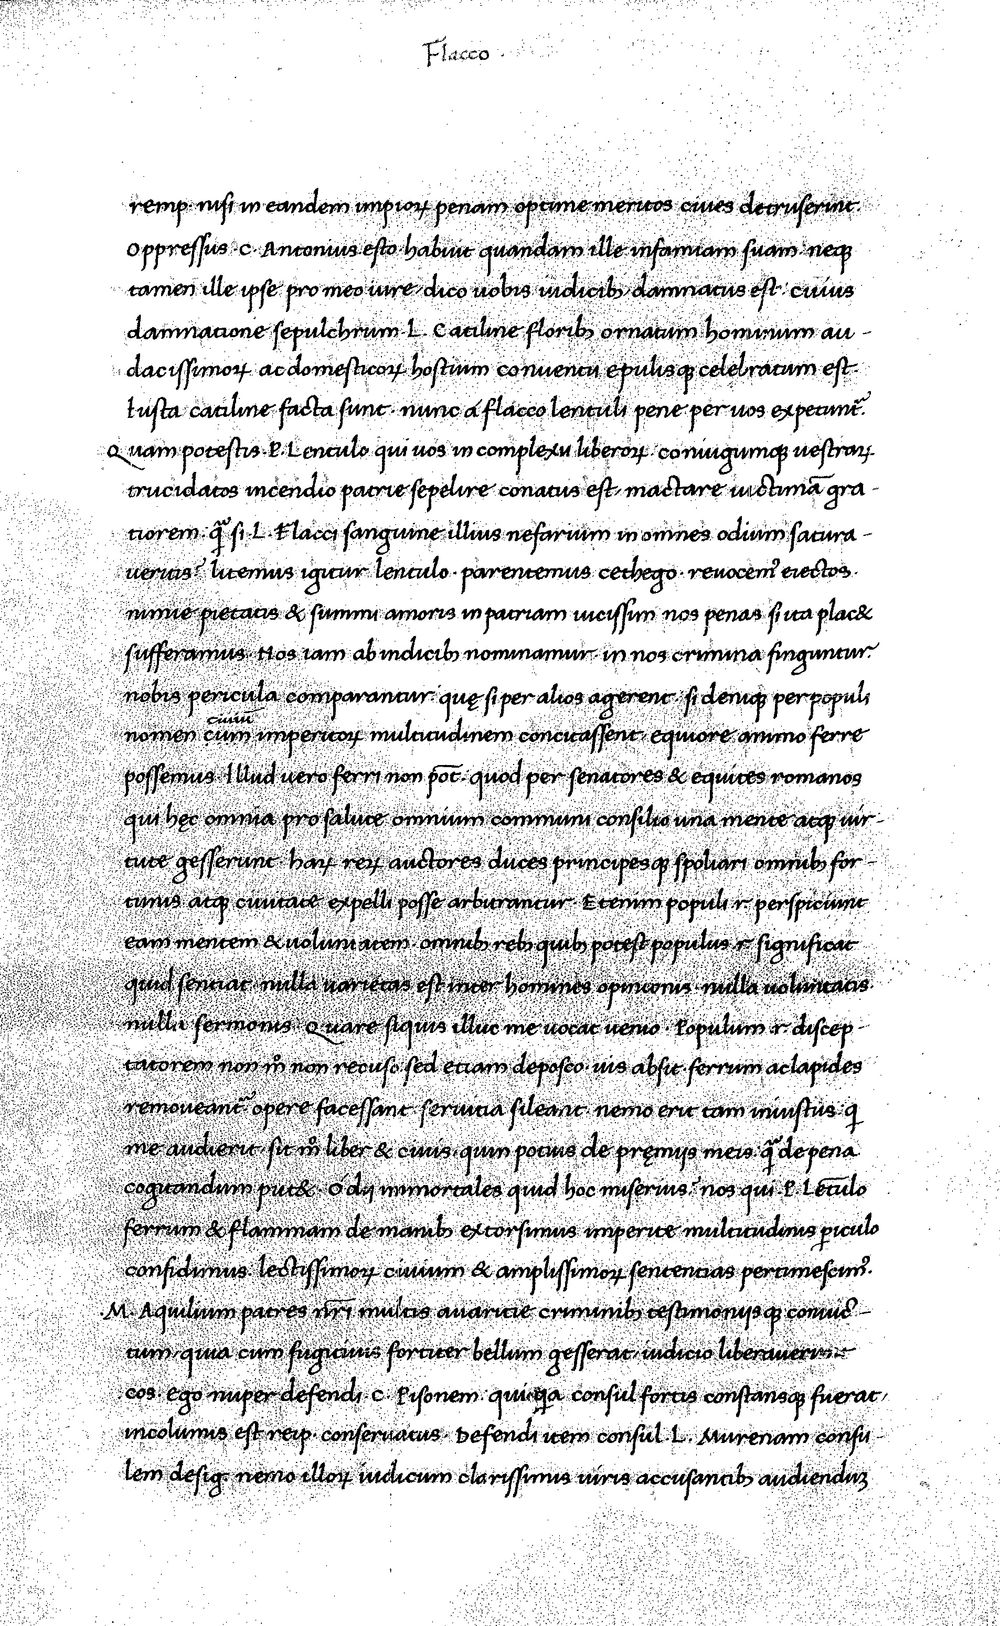 Flacco
remp. nisi in eandem impioꝝ penam optime meritos ciues detruserint.
Oppressus. C. Antonius esto habuit quandam ille infamiam suam. neqꝫ
tamen ille ipse pro meo iure dico uobis iudicibꝫ damnatus est. cuius
damnatione sepulchrum L. Catiline floribꝫ ornatum hominum au-
dacissimoꝝ ac domesticoꝝ hostium conuentu epulisqꝫ celebratum est.
Iusta catiline facta sunt. nunc a flacco lentuli pene per uos expetunt̃.
Quam potestis. P. Lentulo qui uos in complexu liberoꝝ coniugumqꝫ uestraꝝ
trucidatos incendio patrie sepelire conatus est, mactare uictimā gra-
tiorem q̃ si L. Flacci sanguine illius nefarium in omnes odium satura-
ueritis? litemus igitur lentulo. parentemus cethego. reuocem9 eiectos.
nimie pietatis & summi amoris in patriam uicissim nos penas si ita plac&
sufferamus. Nos iam ab indicibꝫ nominamur. in nos crimina finguntur.
nobis pericula comparantur. quę si per alios agerent. si deniqꝫ per populi
nomen cum ciuiū imperitoꝝ multitudinem concitassent. equiore animo ferre
possemus. Illud uero ferri non pōt. quod per senatores & equites romanos
qui hęc omnia pro salute omnium communi consilio una mente atqꝫ uir-
tute gesserunt. haꝝ reꝝ auctores duces principesqꝫ spoliari omnibꝫ for-
tunis atqꝫ ciuitate expelli posse arbitrantur. Etenim populi r. perspiciunt
eam mentem & uoluntatem. omnibꝫ rebꝫ quibꝫ potest populus r. significat
quid sentiat. nulla uarietas est inter homines opinionis. nulla uoluntatis.
nulla sermonis. Quare siquis illuc me uocat uenio. Populum r. discep-
tatorem non m̊ non recuso sed etiam deposco. uis absit. ferrum ac lapides
remoueant̃. opere facessant. seruitia sileant. nemo erit tam iniustus q̇
me audierit. sit m̊ liber & ciuis. quin potius de pręmijs meis. q̃ de pena
cogitandum put&. O dij immortales quid hoc miserius? nos qui. P. Lētulo
ferrum & flammam de manibꝫ extorsimus imperite multitudinis ꝑiculo
confidimus. lectissimoꝝ ciuium & amplissimoꝝ sententias pertimescim9.
M. Aquilium patres nr̄i multis auaritie criminibꝫ testimonijsqꝫ conuic-
tum. quia cum fugitiuis fortiter bellum gesserat. iudicio liberauerunt
cos. ego nuper defendi C. Pisonem. qui q̇a consul fortis constansqꝫ fuerat,
incolumis est reip. conseruatus. Defendi item consul. L. Murenam consu-
lem desig. nemo illoꝝ iudicum clarissimis uiris accusantibꝫ audienduꝫ